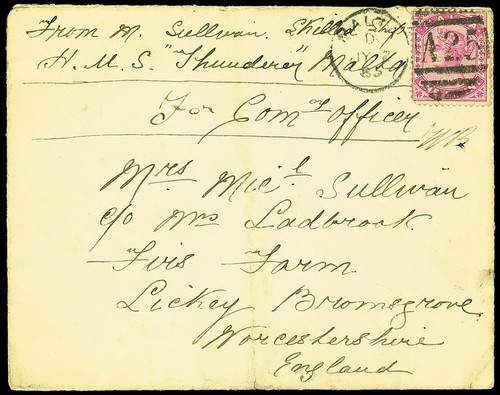 From M. Sullivan. Skilled Shipt
H. M. S. "Thunderer" Malta
For Comg Officer
Mrs Micl Sullivan
c/o Mrs Ladbrook
Firs Farm
Lickey Bromsgrove
Worcestershire
England
MALTA
D
85
A25